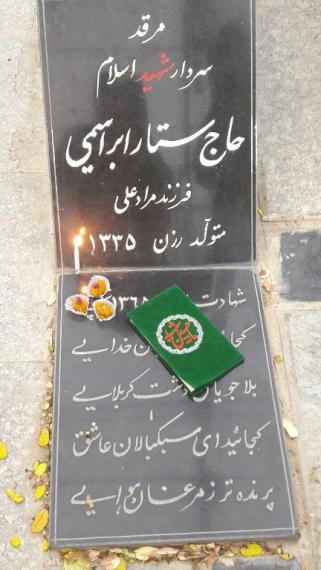 مرقد
سردار شهید اسلام
حاج ستار ابراهیمی
فرزند مراد علی
متولد رزن ۱۳۳۵
شهادت ۱۳۶۵
کجا خدایی
بلا جویان دشت کربلایی
کجائید ای سبکبالان عاشق
پرنده تر ز مرغان هوایی